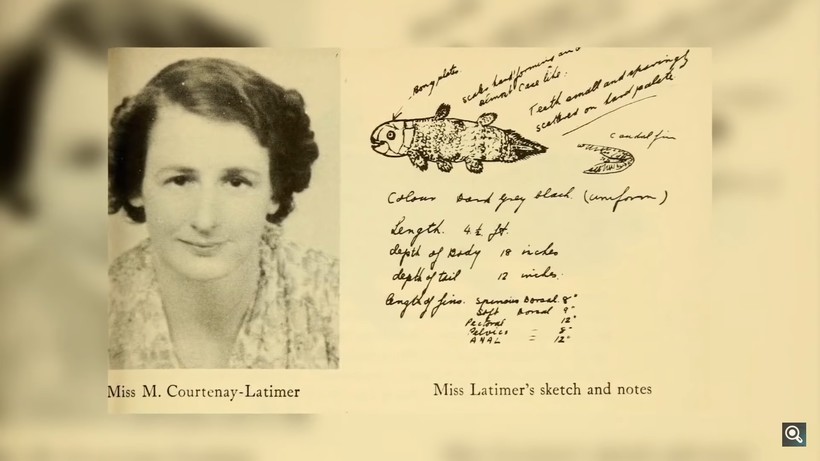 Bony plates
scales hard forming an
almost case like.
Teeth small and sparingly
scattered on hard palate
Caudal fin
Colour Dark grey black. (uniform)
Length. 4½ ft.
depth of Body 18 inches
depth of tail 12 inches.
Length of fins. Spinous Dorsal 8"
Soft Dorsal 9"
Pectoral 12"
Pelvics = 8"
ANAL = 12"
Miss M. Courtenay-Latimer
Miss Latimer's sketch and notes